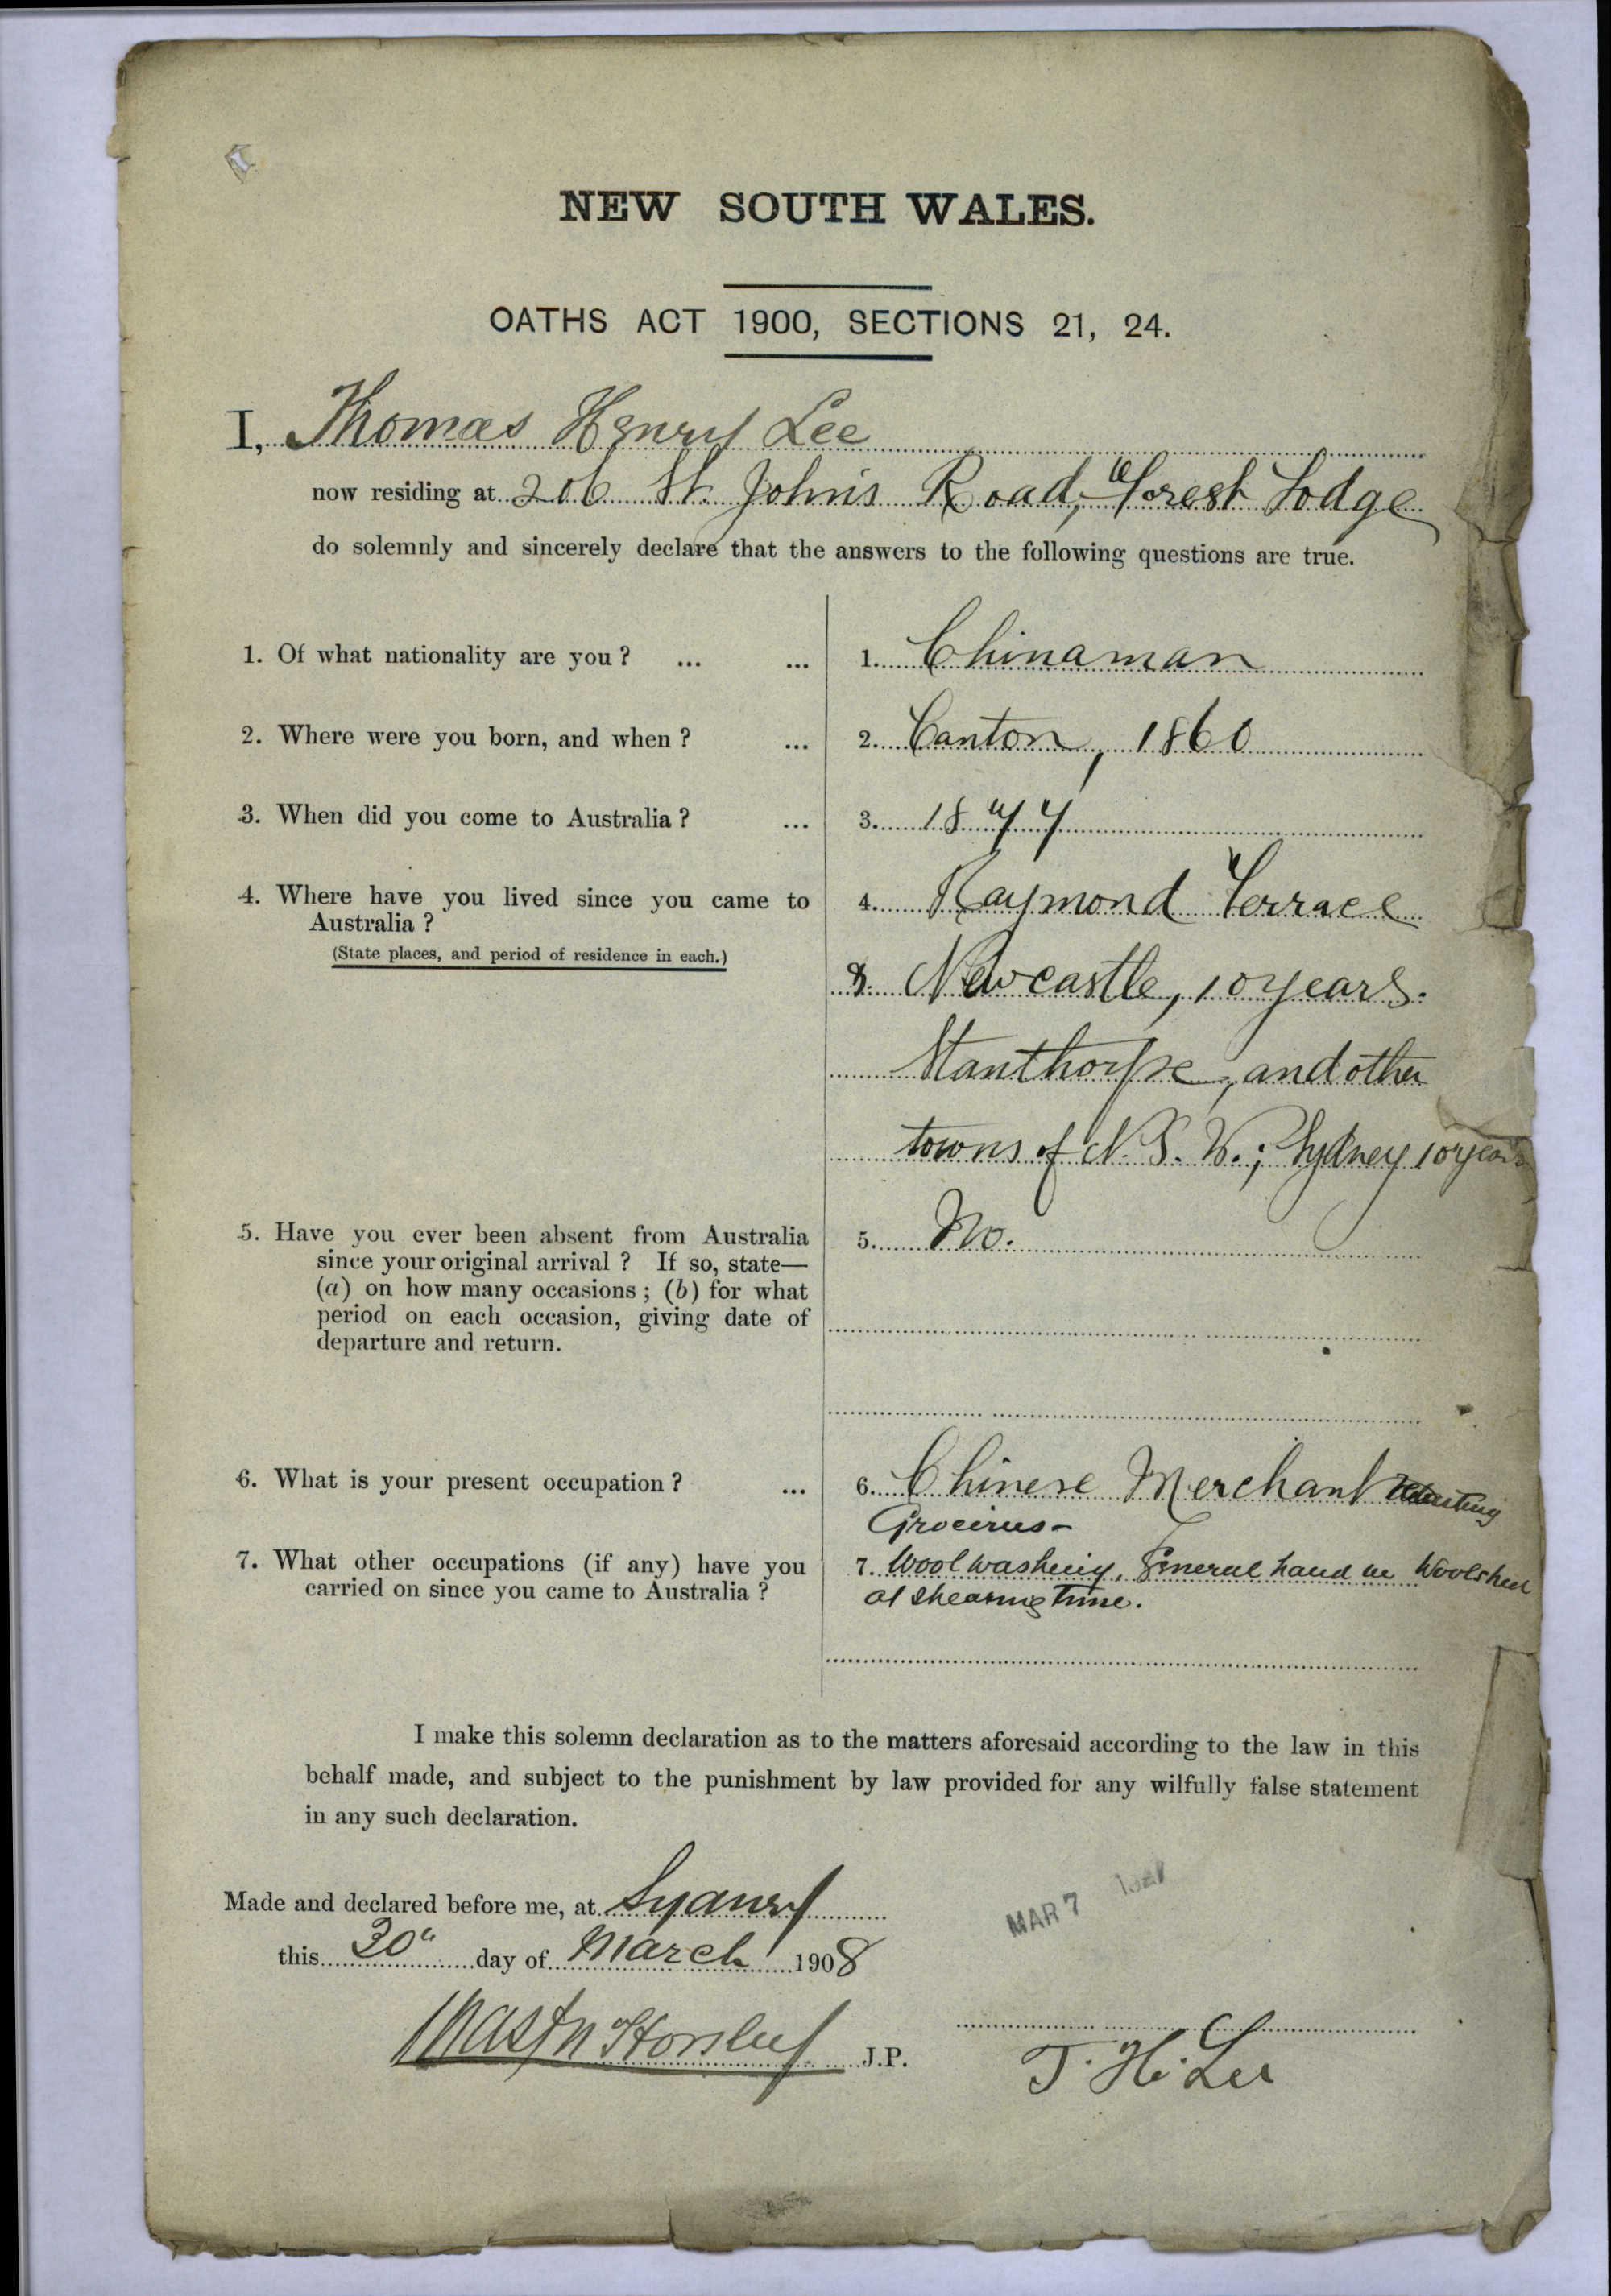 NEW SOUTH WALES.
OATHS ACT 1900, SECTIONS 21, 24.
I, Thomas Henry Lee
now residing at 206 St. Johns Road, Forest Lodge
do solemnly and sincerely declare that the answers to the following questions are true.
1. Of what nationality are you? ... ... 1. Chinaman
2. Where were you born, and when? ... 2. Canton, 1860
3. When did you come to Australia? ... 3. 1877
4. Where have you lived since you came to 4. Raymond Terrace
Australia?
(State places, and period of residence in each.)
& Newcastle, 10 years.
Stanthorpe, and other
towns of N. S. W.; Sydney 10 years
5. Have you ever been absent from Australia 5. No.
since your original arrival? If so, state—
(a) on how many occasions; (b) for what
period on each occasion, giving date of
departure and return.
6. What is your present occupation? ... 6. Chinese Merchant
Groceries-
7. What other occupations (if any) have you 7. Wool washing, General hand in Woolshed
carried on since you came to Australia? at shearing time.
I make this solemn declaration as to the matters aforesaid according to the law in this
behalf made, and subject to the punishment by law provided for any wilfully false statement
in any such declaration.
MAR 7
Made and declared before me, at Sydney
this 30" day of March 1908
J.P.
T. H. Lee